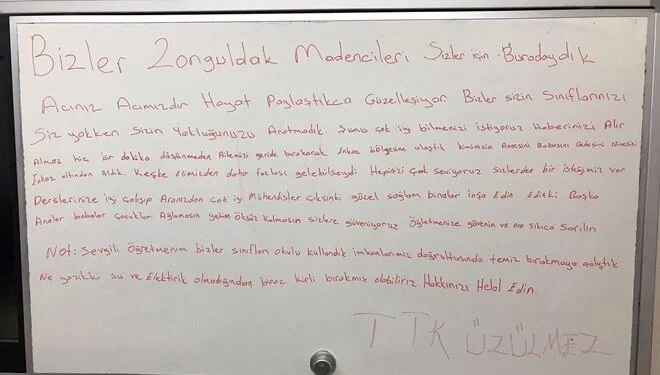 Bizler Zonguldak Madencileri Sizler için Buradaydık
Acınız Acımızdır Hayat Paylaştıkca Güzelleşiyor Bizler sizin Sınıflarınızı
Siz yokken Sizin Yokluğunuzu Aratmadık. Şunu çok iyi bilmenizi istiyoruz Haberinizi Alır
Almaz hiç bir dakika düşünmeden Ailemizi geride bırakarak Enkaz bölgesine ulaştık kiminizin Annesini Babasını Dedesini Ninesini
Enkaz altından Aldık. Keşke Elimizden daha fazlası gelebilseydi Hepinizi Çok Seviyoruz sizlerden bir isteğimiz var
Derslerinize iyi çalışıp Aranızdan çok iyi Mühendisler Çıksınki güzel sağlam binalar İnşa Edin Edinki Başka
Analar babalar Çocuklar Ağlamasın yetim Öksüz kalmasın sizlere güveniyoruz Öğretmenize güvenin ve ona sıkıca Sarılın
Not: Sevgili Öğretmenim bizler sınıfları okulu kullandık imkanlarımız doğrultusunda temiz bırakmaya çalıştık
Ne yazıkki su ve Elektirik olmadığından biraz kirli bırakmış olabiliriz Hakkınızı Helal Edin.
TTK ÜZÜLMEZ